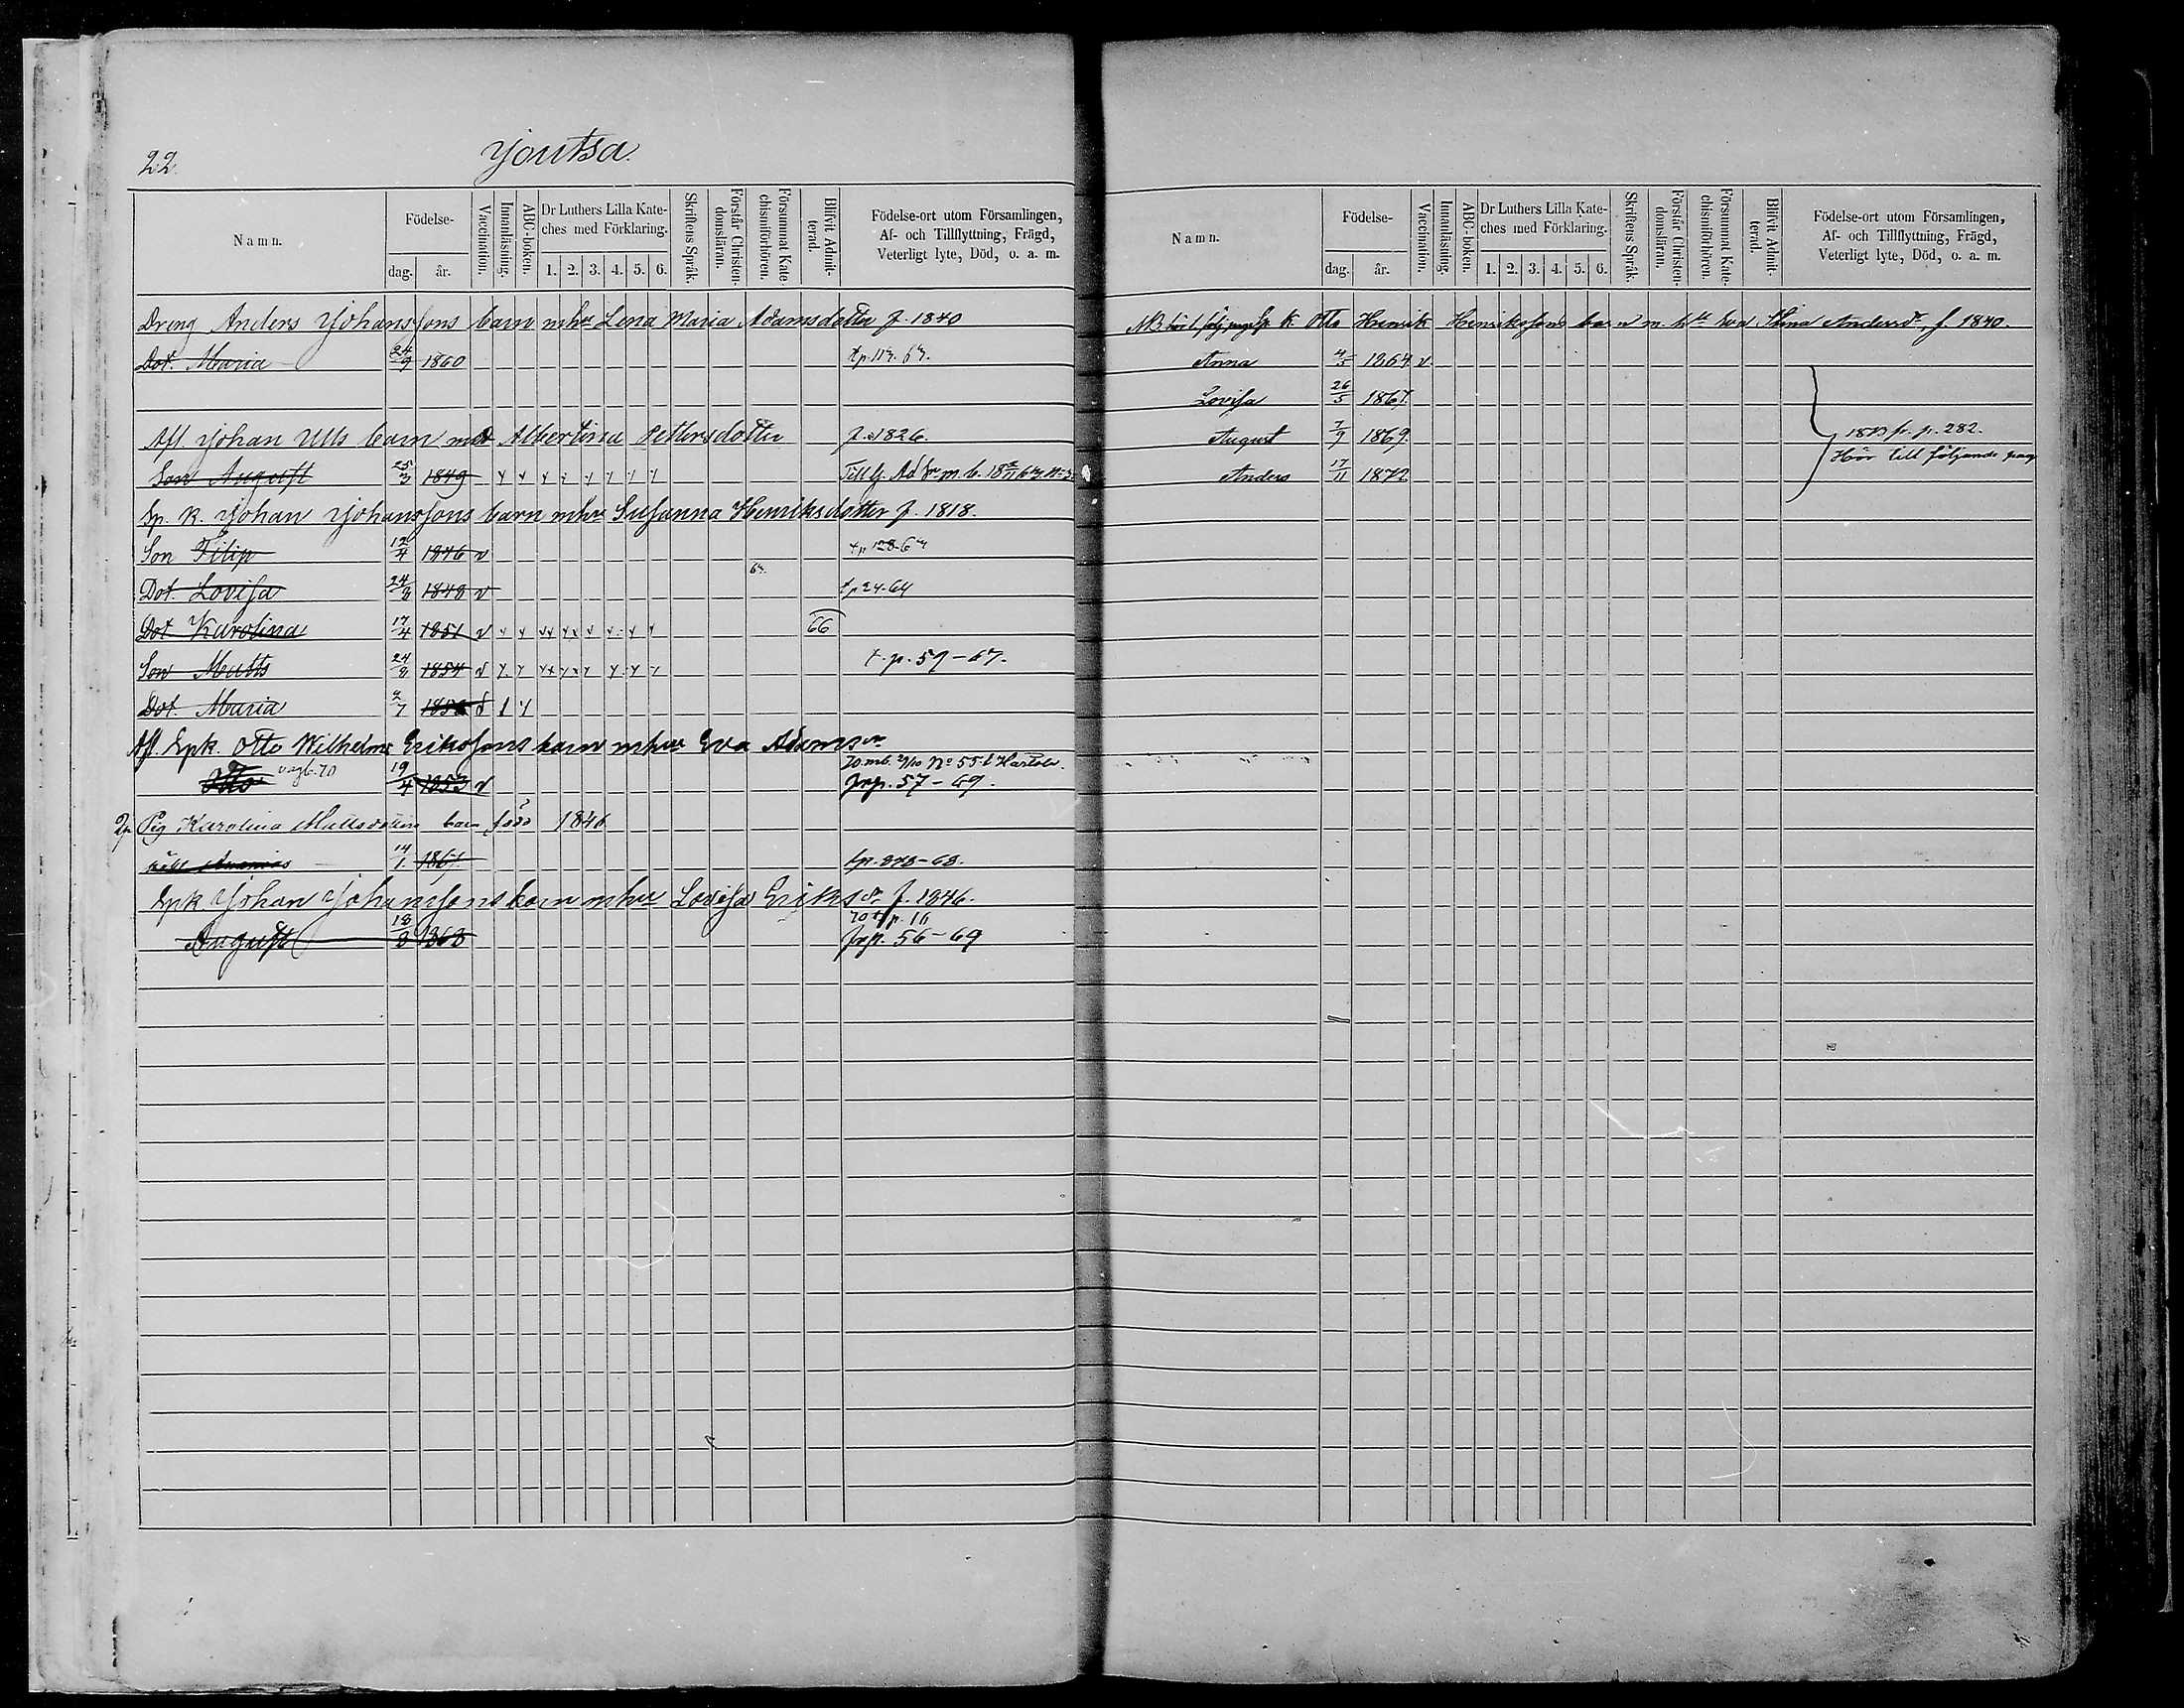 22.
Joutsa.
Namn.
Födelse-
dag.
år.
Vaccination.
Innanläsning.
ABC-boken.
Dr Luthers Lilla Kate-
ches med Förklaring.
1. 2. 3. 4. 5. 6.
Skriftens Språk.
Förstår Christen-
domsläran.
Försummat Kate-
chismiförhören.
Blifvit Admit-
terad.
Födelse-ort utom Församlingen,
Af- och Tillflyttning, Frägd,
Veterligt lyte, Död, o. a. m.
Dreng Anders Johanssons barn mhu Lena Maria Adamsdotter f. 1840
Dot. Maria 24/9 1860
Afl. Johan Ulls barn med Albertina Pettersdotter f. 1826.
Son August 25/3 1849
Sp. k. Johan Johanssons barn mhu Susanna Henriksdotter f. 1818.
Son Filip 12/4 1846 v
67.
Dot. Lovisa 24/8 1848 v tp 24-64
Dot Karolina 17/4 1851 v 66
Son Matts 24/8 1854 v t. p. 59-67.
Dot. Maria
Afl. Spk. Otto Wilhelm Erikssons barn mhu Eva Adamsdr
Otto 19/4 1853 v frp. 57-69.
Pig Karolina Mattsdotters barn född 1846
14/1 1867 tp. 278-68.
Spk. Johan Johanssons barn mhu Lovisa Eriksdr f. 1846.
70 t p. 16
August 18/8 1868 frp. 56-69
Namn.
Födelse-
dag.
år.
Vaccination.
Innanläsning.
ABC-boken.
Dr Luthers Lilla Kate-
ches med Förklaring.
1. 2. 3. 4. 5. 6.
Skriftens Språk.
Förstår Christen-
domsläran.
Försummat Kate-
chismiförhören.
Blifvit Admit-
terad.
Födelse-ort utom Församlingen,
Af- och Tillflyttning, Frägd,
Veterligt lyte, Död, o. a. m.
Otto Henrik Henrikssons barn m. hu Eva Stina Andersdr f. 1840.
Anna 4/5 1864 v.
Lovisa 26/5 1867.
August 7/9 1869. 1873 fr. p. 282.
Hör till följande pag
Anders 17/11 1872